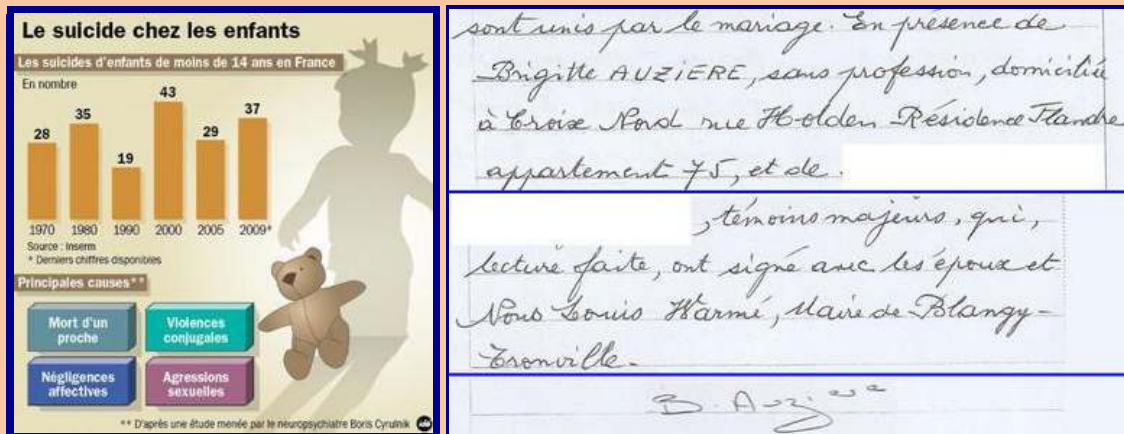 Le suicide chez les enfants
Les suicides d'enfants de moins de 14 ans en France
En nombre
28 35 19 43 29 37
1970 1980 1990 2000 2005 2009*
Source : Inserm
* Derniers chiffres disponibles
Principales causes**
Mort d'un proche
Violences conjugales
Négligences affectives
Agressions sexuelles
** D'après une étude menée par le neuropsychiatre Boris Cyrulnik
sont unis par le mariage. En présence de
Brigitte AUZIERE, sans profession, domiciliée
à Croix Nord rue Holden Résidence Flandre
appartement 75, et de
, témoins majeurs, qui,
lecture faite, ont signé avec les époux et
Nous Louis Warmé, Maire de Blangy-
Tronville.
B. Auziere